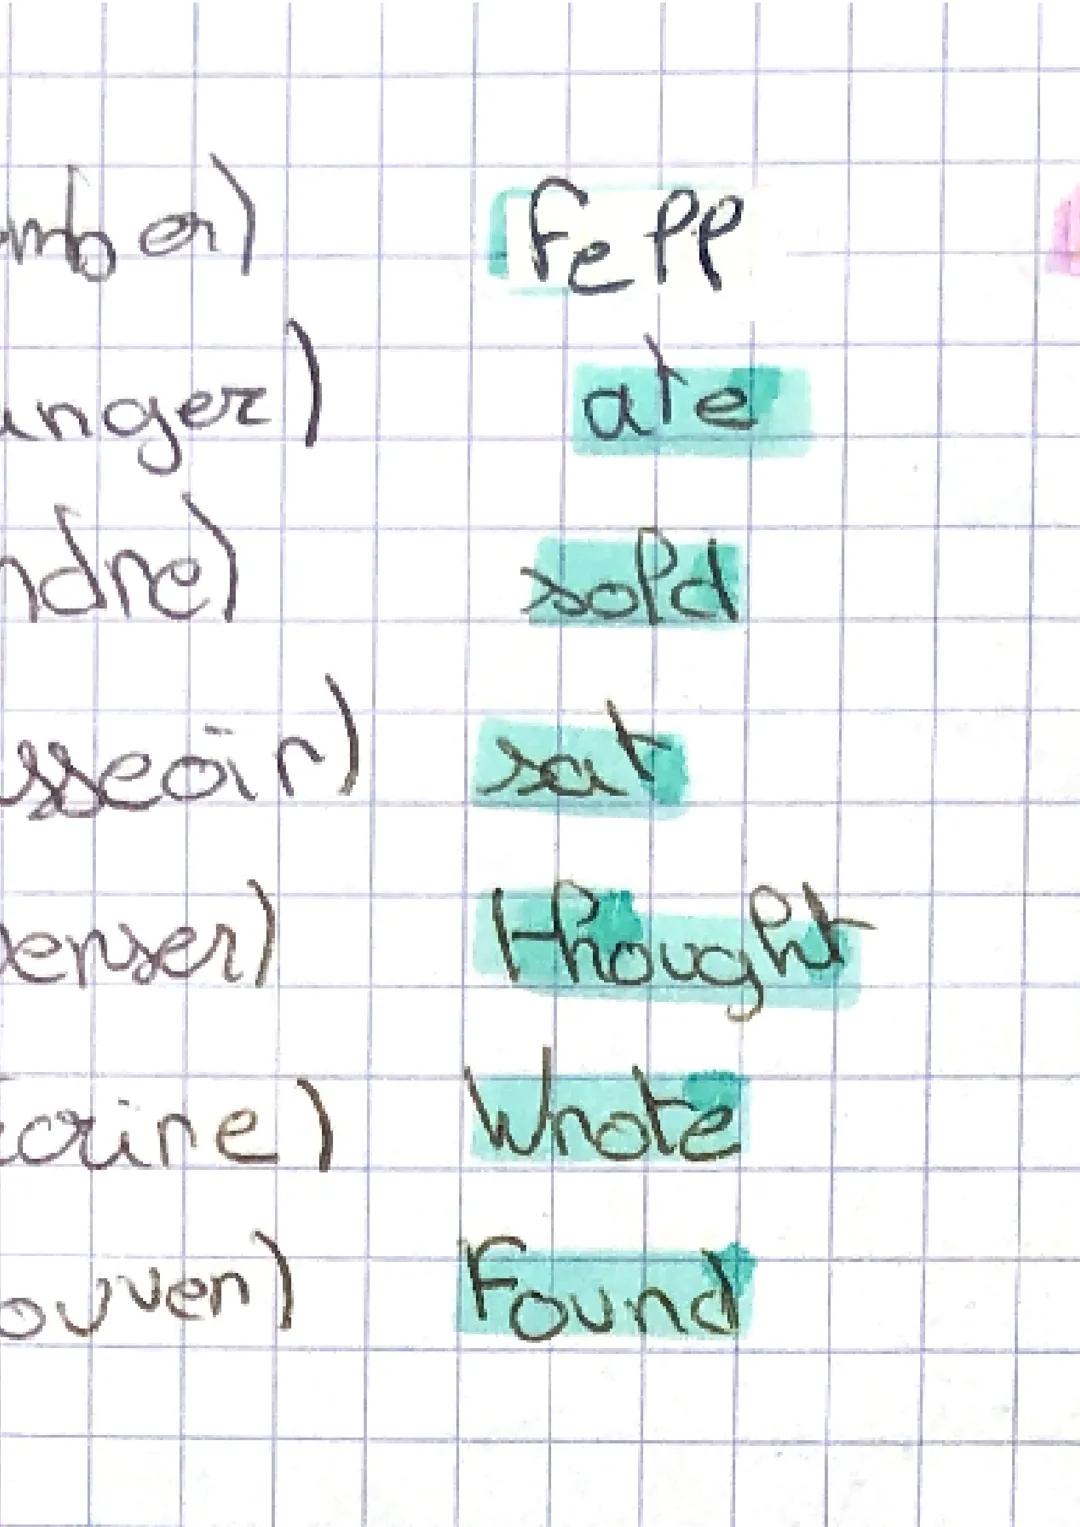 omber) fell
anger) ate
ndre) sold
sseoir) sat
enser) thought
crire) Wrote
ouver) Found